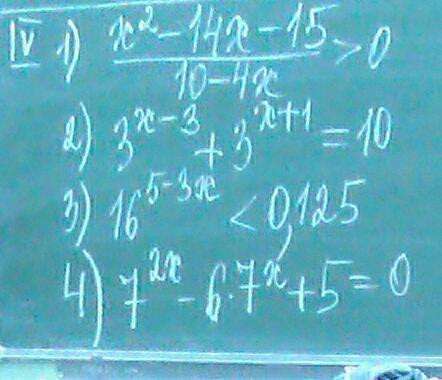 IV 1) (x² - 14x - 15)/(10 - 4x) > 0
2) 3^(x-3) + 3^(x+1) = 10
3) 16^(5-3x) < 0,125
4) 7^(2x) - 6·7^x + 5 = 0